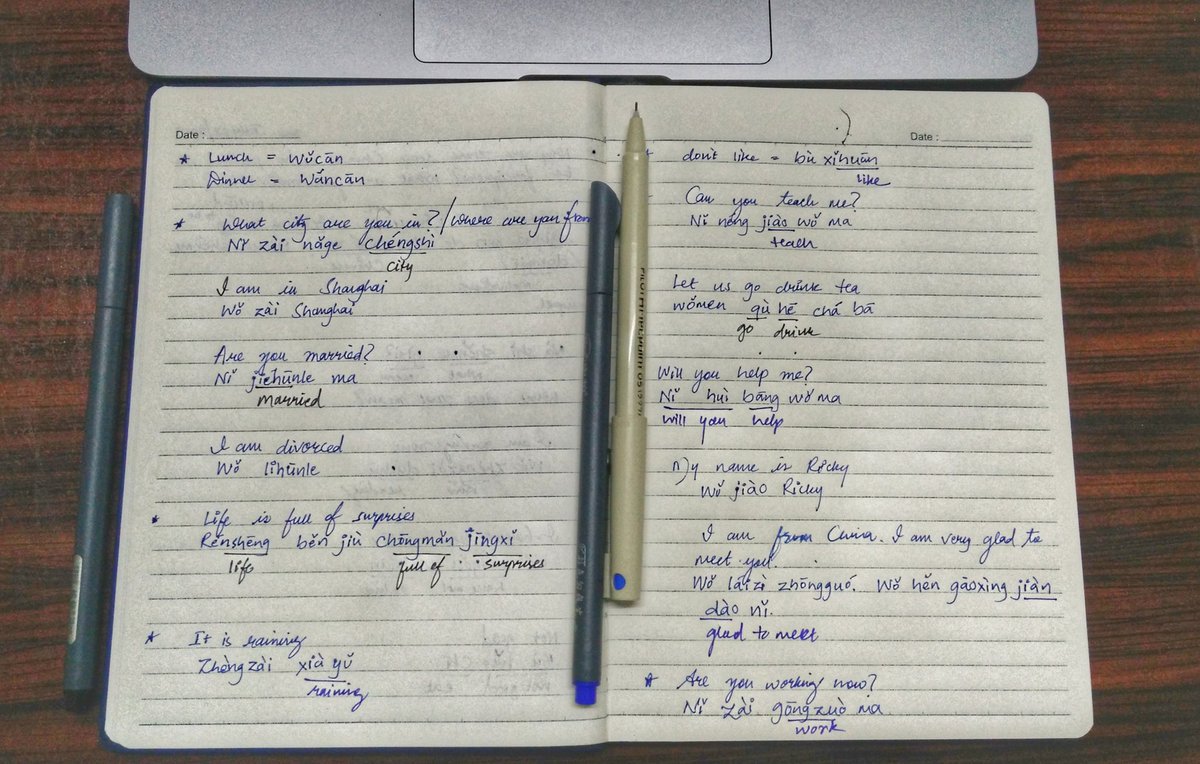 Date :
* Lunch = Wǔcān
Dinner = Wǎncān
* What city are you in? / Where are you from
Nǐ zài nǎge chéngshì
city
I am in Shanghai
Wǒ zài Shanghai
Are you married?
Nǐ jiéhūnle ma
married
I am divorced
Wǒ líhūnle
* Life is full of surprises
Rénshēng běn jiù chōngmǎn jīngxǐ
life full of surprises
* It is raining
Zhèngzài xià yǔ
raining
Date :
don't like = bù xǐhuān
like
Can you teach me?
Nǐ néng jiào wǒ ma
teach
Let us go drink tea
wǒmen qù hē chá bā
go drink
Will you help me?
Nǐ huì bāng wǒ ma
will you help
My name is Ricky
Wǒ jiào Ricky
I am from China. I am very glad to
meet you.
Wǒ láizì zhōngguó. Wǒ hěn gāoxìng jiàn
dào nǐ.
glad to meet
* Are you working now?
Nǐ zài gōngzuò ma
work